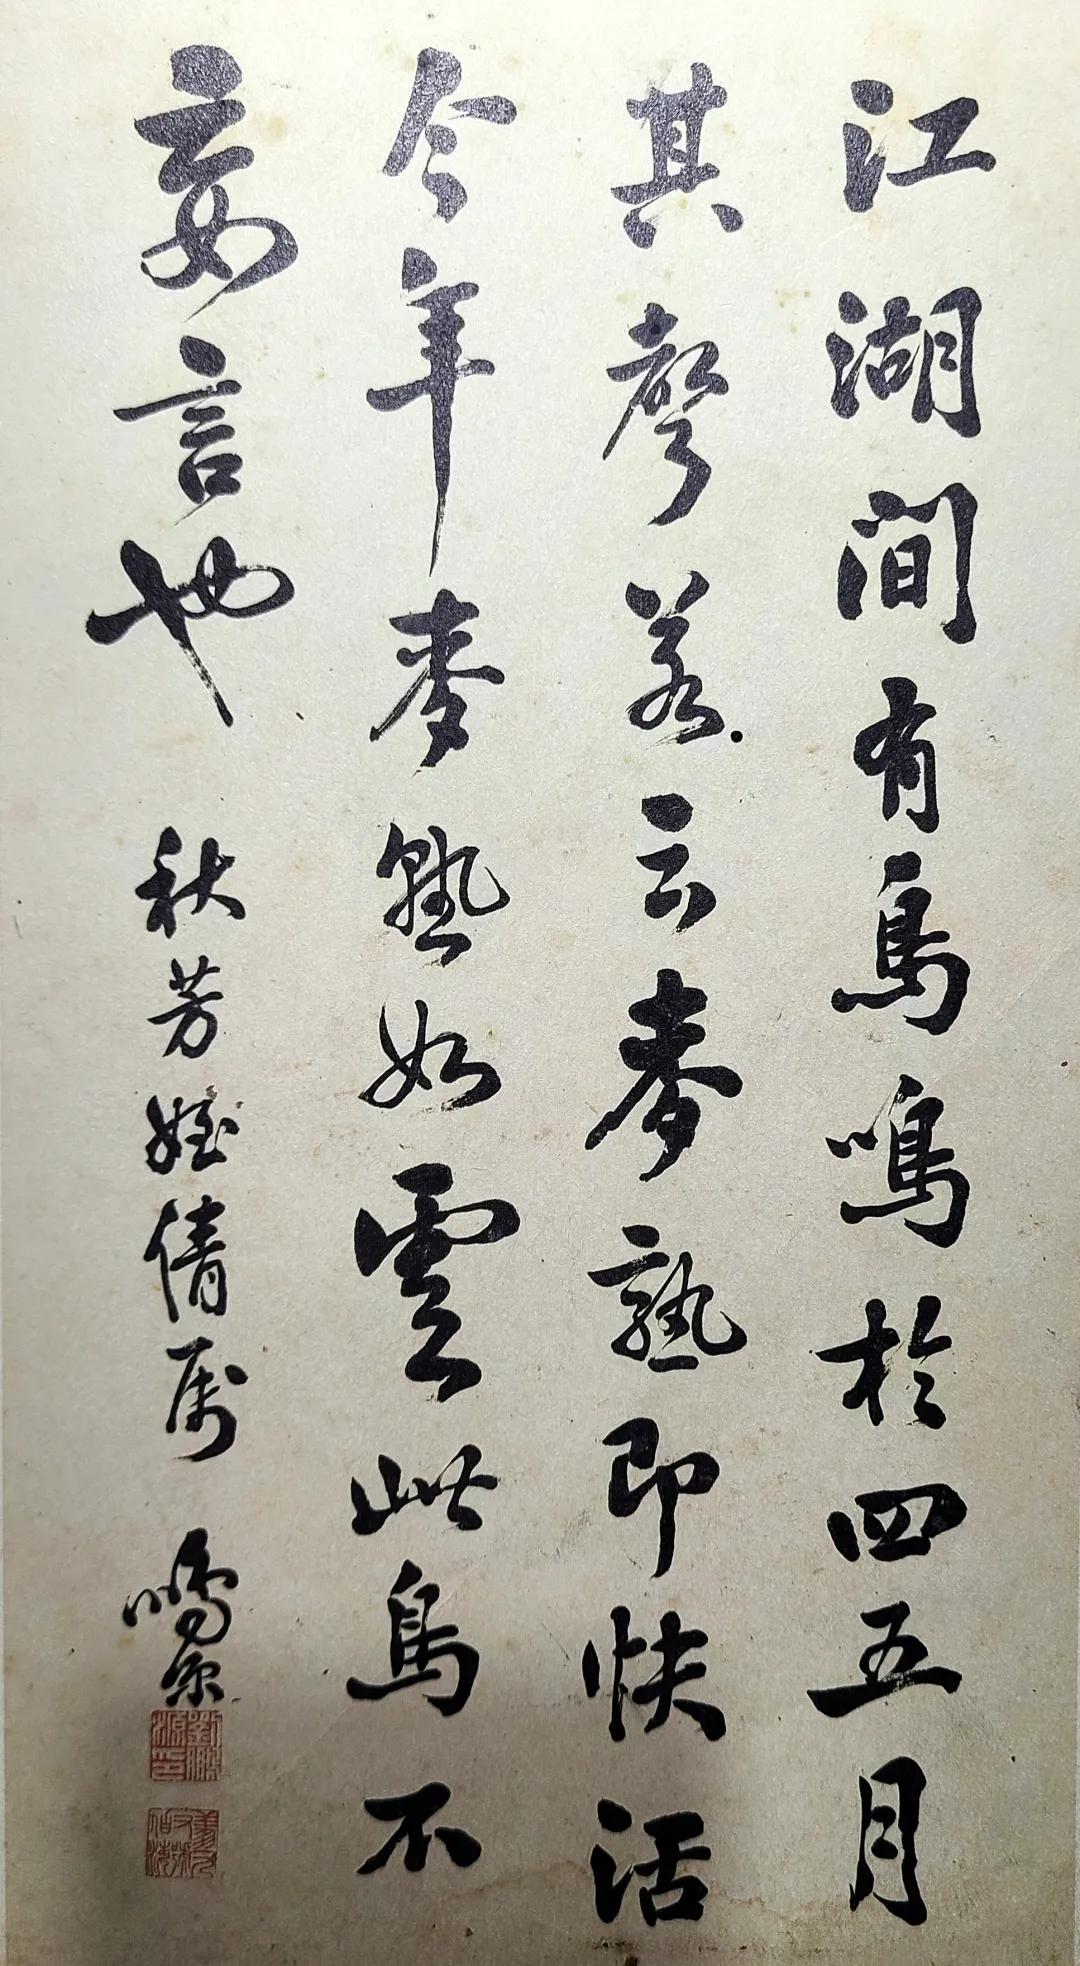 江湖间有鳥鳴於四五月
其聲若云麥熟即快活
今年麥熟如雲此鳥不
妄言也
秋芳姪倩属
鵬源
劉鵬源印